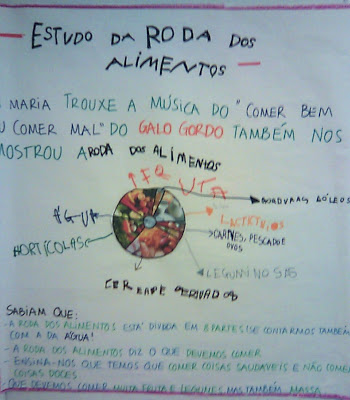 ESTUDO DA RODA DOS
ALIMENTOS
MARIA TROUXE A MÚSICA DO "COMER BEM
OU COMER MAL" DO GALO GORDO TAMBÉM NOS
MOSTROU A RODA DOS ALIMENTOS
FRUTA
GORDURAS E ÓLEOS
ÁGUA
LACTICÍNIOS
CARNES, PESCADO E
OVOS
HORTÍCOLAS
LEGUMINOSAS
CEREAIS E DERIVADOS
SABIAM QUE:
- A RODA DOS ALIMENTOS ESTÁ DIVIDIDA EM 8 PARTES (SE CONTARMOS TAMBÉM
COM A DA ÁGUA!
- A RODA DOS ALIMENTOS DIZ O QUE DEVEMOS COMER
- ENSINA-NOS QUE TEMOS QUE COMER COISAS SAUDÁVEIS E NÃO COMER
COISAS DOCES.
- QUE DEVEMOS COMER MUITA FRUTA E LEGUMES MAS TAMBÉM MASSA